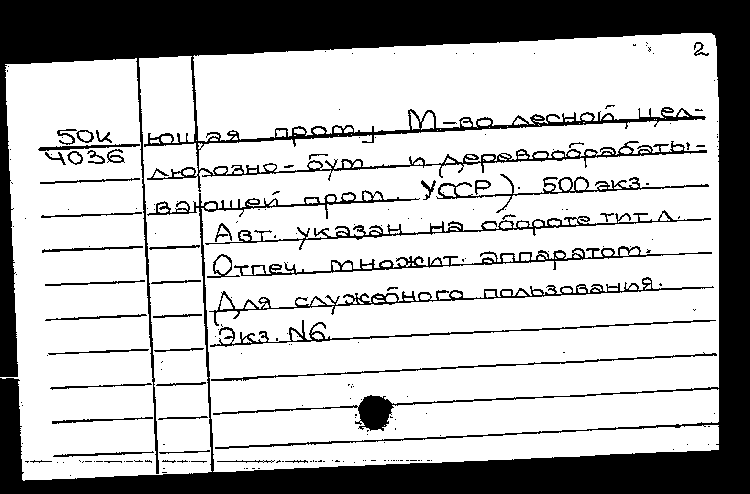 2
50К
4036
ющая пром.; М-во лесной, цел-
люлозно-бум. и деревообрабаты-
вающей пром. УССР). 500 экз.
Авт. указан на обороте тит. л.
Отпеч. множит. аппаратом.
Для служебного пользования.
Экз. N6.